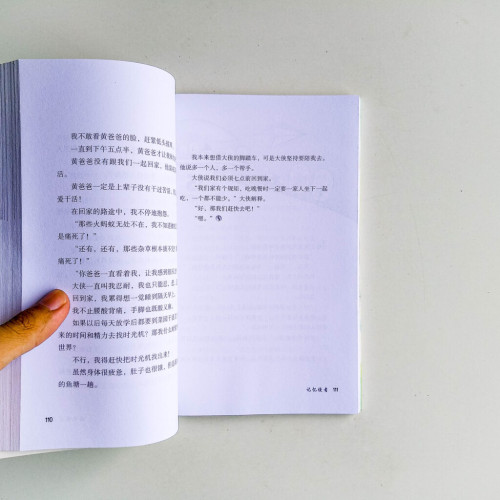 我不敢看黄爸爸的脸，赶紧低头接过
一直到下午五点半，黄爸爸才让我们
黄爸爸没有跟我们一起回家，他说
活。
黄爸爸一定是上辈子没有干过苦活，
爱干活！
在回家的路途中，我不停地抱怨。
“那些火蚂蚁无处不在，我不知道被
是痛死了！”
“还有，还有，那些杂草根本就不
痛死了！”
“你爸爸一直看着我，让我感到很
大侠一直叫我忍耐，我也只能忍，忍
回到家，我累得想一觉睡到隔天早
我不止腰酸背痛，手脚也既酸又麻。
如果以后每天放学后都要到菜园干活
来的时间和精力去找时光机？那我什么时候
世界？
不行，我得赶快把时光机找出来！
虽然身体很疲惫，肚子也很饿，但我
的鱼塘一趟。
110
我本来想借大侠的脚踏车，可是大侠坚持要陪我去。
他说多一个人，多一个帮手。
大侠说我们必须七点前回到家。
“我们家有个规矩，吃晚餐时一定要一家人坐下一起
吃，一个都不能少。”大侠解释。
“好，那我们赶快去吧！”
“嗯。”
记忆读者 111